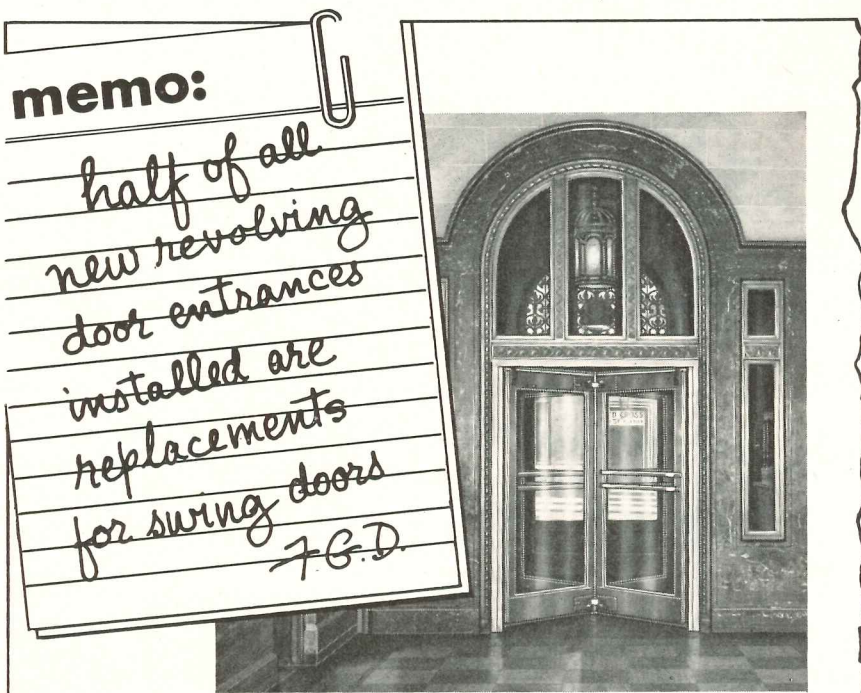 memo:
half of all
new revolving
door entrances
installed are
replacements
for swing doors
F.G.D.